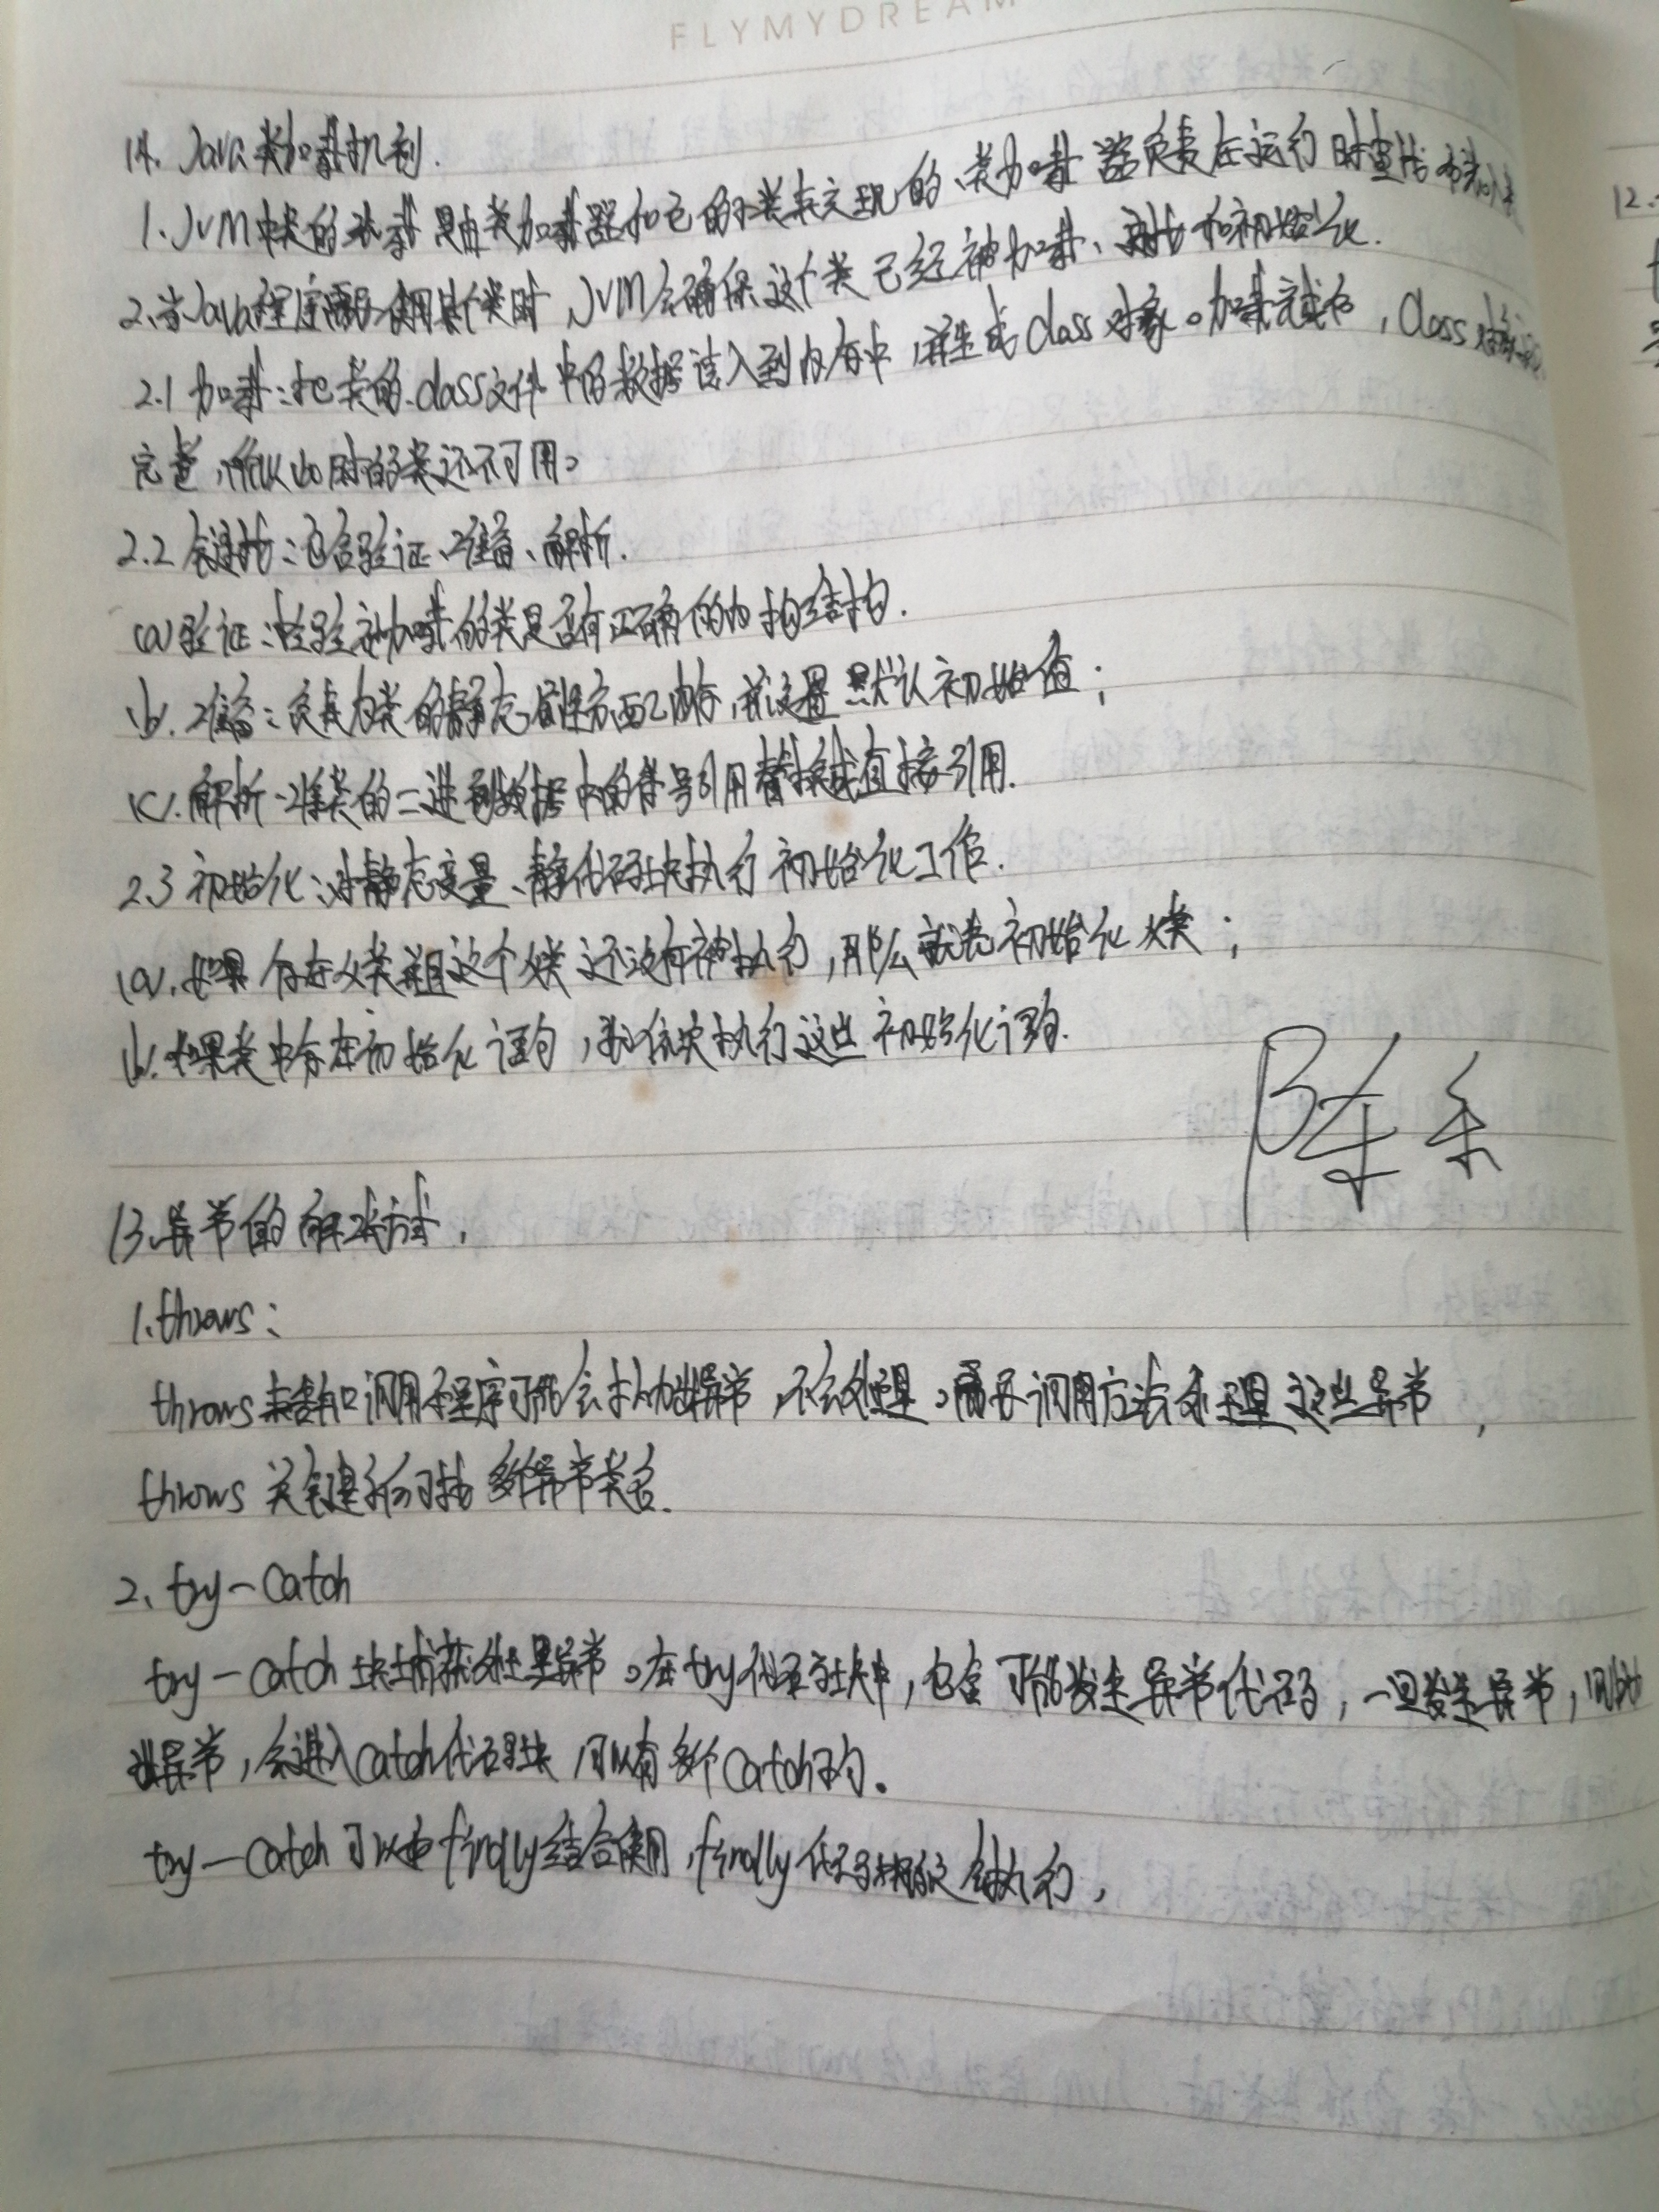 FLYMYDREAM
14. Java类加载机制.
1. JVM中类的 是由类加载器和它的子类来实现的、类加载器负责在运行时查找
2.当Java程序需要使用某个类时,JVM会确保这个类已经被加载、连接和初始化.
2.1 加载:把类的.class文件中的数据读入到内存中,并生成Class对象。加载完成后,Class对象
完整,所以此时的类还不可用。
2.2 链接:包含验证、准备、解析.
(a)验证:检验被加载的类是否有正确的内部结构.
(b).准备:负责为类的静态属性分配内存,并设置默认初始值;
(c).解析:将类的二进制数据中的符号引用替换成直接引用.
2.3 初始化:对静态变量、静态代码块执行初始化工作.
(a).如果存在父类且这个父类还没有被执行,那么就先初始化父类;
(b).如果类中存在初始化语句,就依次执行这些初始化语句.
陈
13.异常的解决方式,
1.throws:
throws 调用程序可能会抛出异常,不会处理。需要调用方法处理这些异常,
throws 关键字 多个异常类名.
2、try-catch
try-catch块捕获处理异常。在try代码块中,包含可能发生异常代码,一旦发生异常,
出异常,会进入catch代码块 可以有多个catch句。
try-catch可以和finally结合使用,finally代码块 会执行,
12.